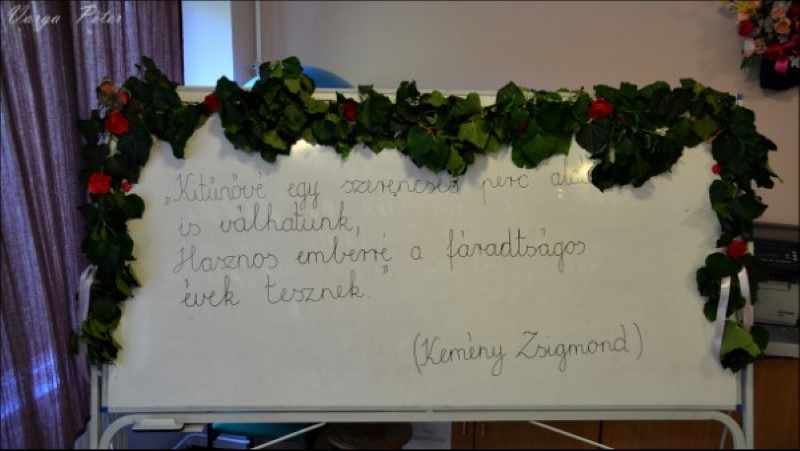 Varga Péter
„Kitűnővé egy szerencsés perc
is válhatunk,
Hasznos emberré a fáradtságos
évek tesznek."
(Kemény Zsigmond)